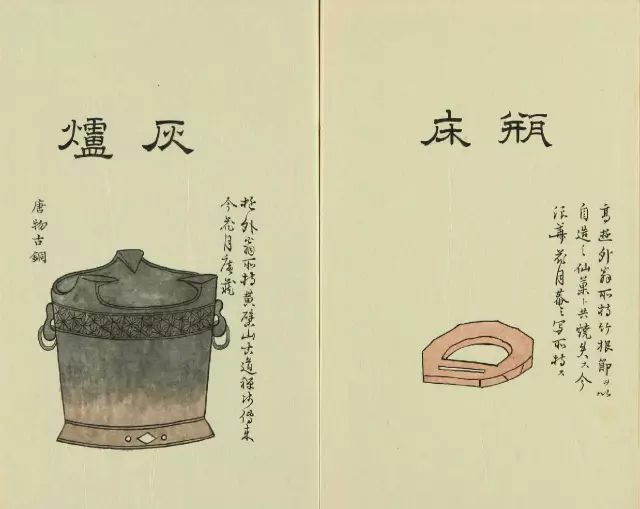 瓶床
高遊外翁所持竹根節ヲ以
自造之仙菓ト共焼矣ス今
浪華花月菴之写所持ス
灰爐
遊外翁所持黄檗山古道禅師傳来
今花月庵蔵
唐物古銅